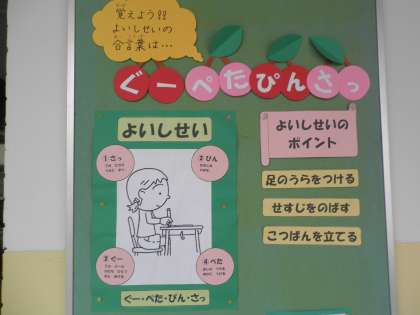 覚えよう!!
よいしせいの
合言葉は…
ぐーぺたぴんさっ
よいしせい
1.さっ
2.ぴん
3.ぐー
4.ぺた
ぐー・ぺた・ぴん・さっ
よいしせいの
ポイント
足のうらをつける
せすじをのばす
こつばんを立てる